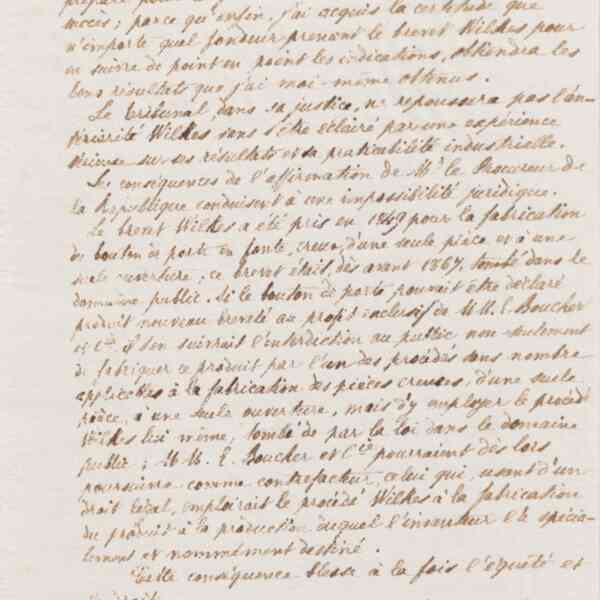 succès ; parce qu'enfin, j'ai acquis la certitude que
n'importe quel fondeur prenant le brevet Wilkes pour
en suivre de point en point les indications, obtiendra les
bons résultats que j'ai moi-même obtenus.
Le tribunal, dans sa justice, ne repoussera pas l'an-
tériorité Wilkes sans s'être éclairé par une expérience
sur ses résultats et sa praticabilité industrielle.
Les conséquences de l'affirmation de Mr le Procureur de
la République conduisent à une impossibilité juridique.
Le brevet Wilkes a été pris en 1849 pour la fabrication
du bouton de porte en fonte, creux, d'une seule pièce et à une
seule ouverture ; ce brevet était, dès avant 1867, tombé dans le
domaine public. Si le bouton de porte, pouvait être déclaré
produit nouveau breveté au profit exclusif de M.M. E. Boucher
et Cie il s'en suivrait l'interdiction au public non-seulement
de fabriquer ce produit par l'un des procédés sans nombre
applicables à la fabrication des pièces creuses, d'une seule
pièce, à une seule ouverture, mais d'y employer le procédé
Wilkes lui même, tombé de par la loi dans le domaine
public ; M.M. E. Boucher et Cie pourraient dès lors
poursuivre comme contrefacteur, celui qui, usant d'un
droit légal, emploirait le procédé Wilkes à la fabrication
du produit à la production auquel l'inventeur l'a spécia-
lement et nommément destiné.
Cette conséquence blesse à la fois l'équité et